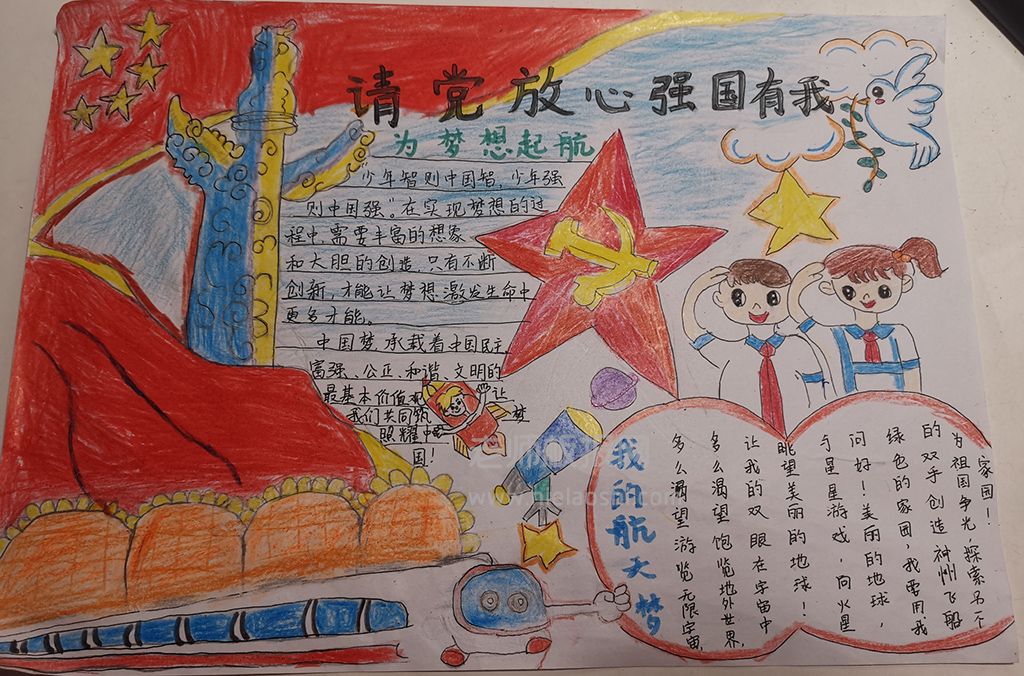 请党放心强国有我
为梦想起航
“少年智则中国智,少年强
则中国强”。在实现梦想的过
程中,需要丰富的想象
和大胆的创造,只有不断
创新,才能让梦想激发生命中
更多才能。
中国梦承载着中国民主、
富强、公正、和谐、文明的
最基本价值观 让
我们共同筑 梦
照耀中
国!
我的航天梦
多么渴望游览无限宇宙,
多么渴望饱览地外世界,
让我的双眼在宇宙中
眺望美丽的地球!
与星星游戏,向火星
问好!美丽的地球,
绿色的家园,我要用我
的双手创造神州飞船
为祖国争光,探索另一个
家园!